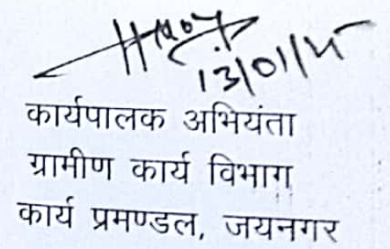 13/01/25
कार्यपालक अभियंता
ग्रामीण कार्य विभाग
कार्य प्रमण्डल, जयनगर